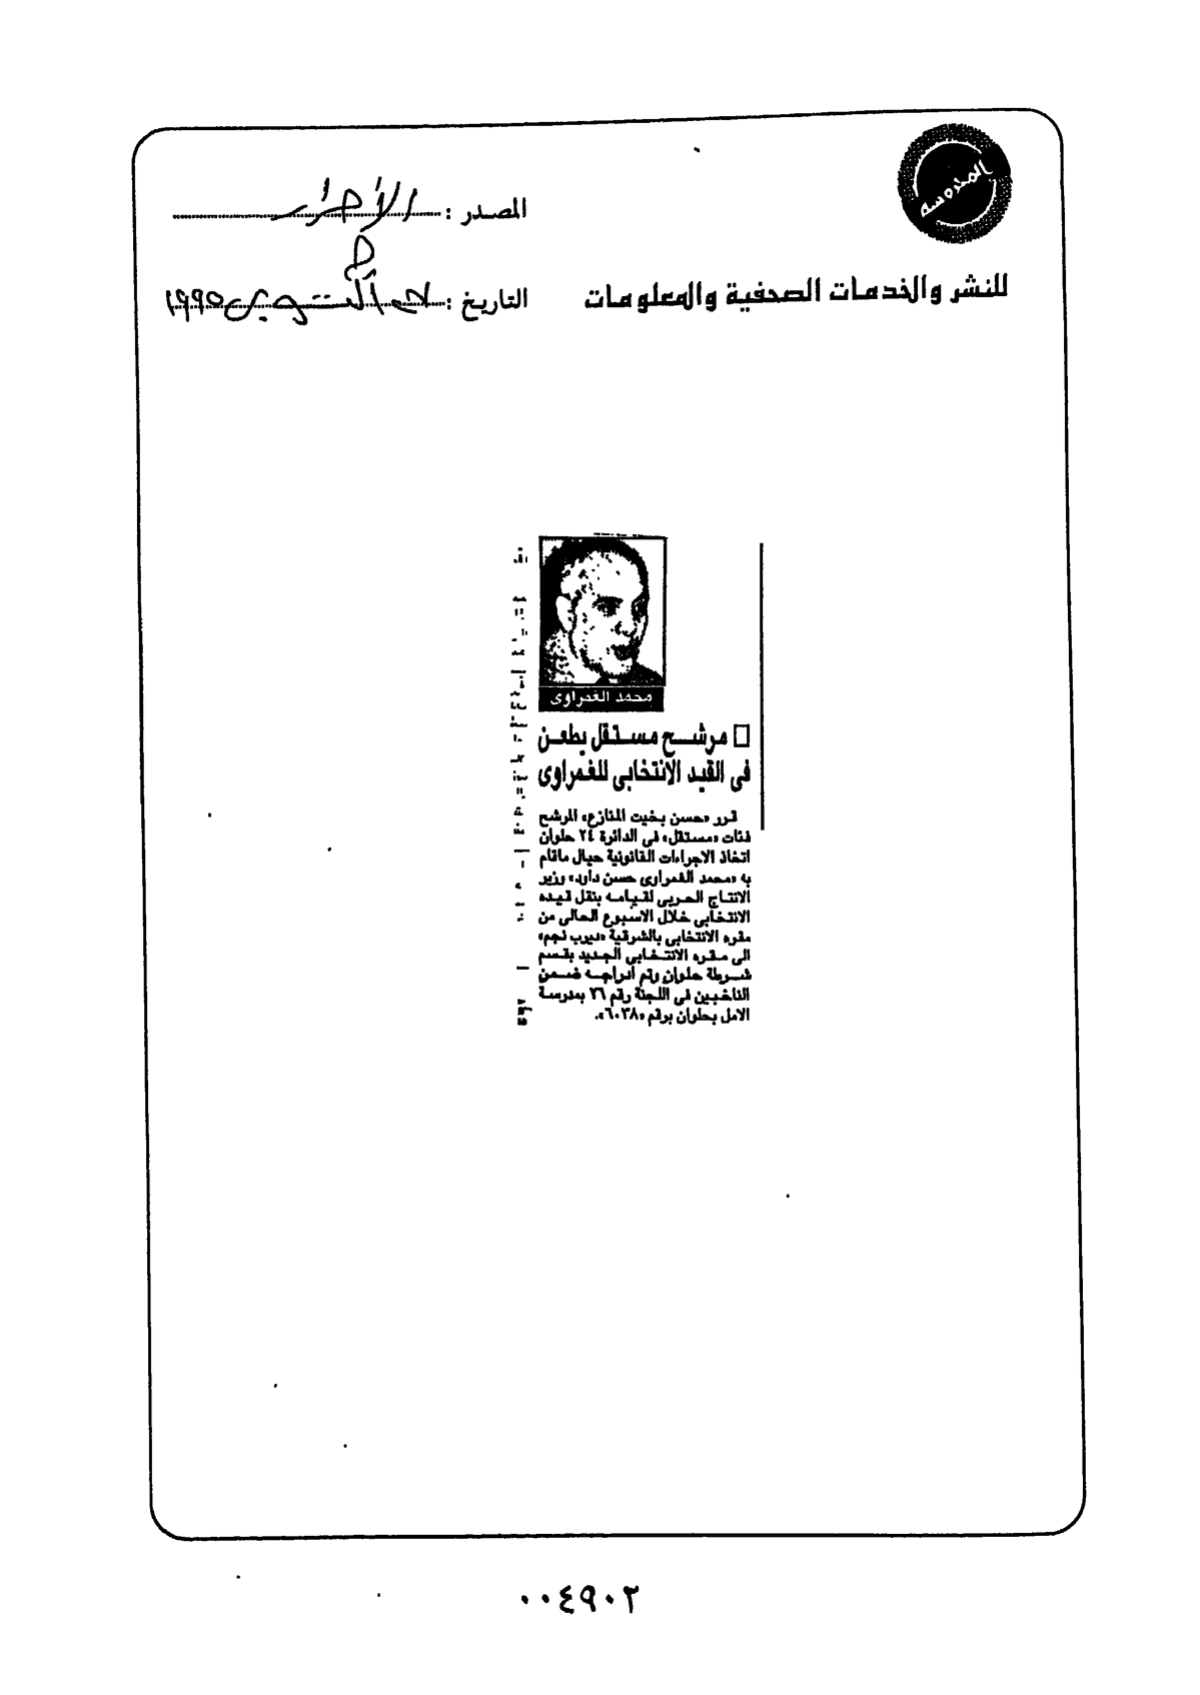 المحروسة
المصدر : الأحرار
للنشر والخدمات الصحفية والمعلومات
التاريخ : أكتوبر ١٩٩٥
محمد الغمراوى
□ مرشح مستقل يطعن
فى القيد الانتخابى للغمراوى
قرر «حسن بخيت المنازع» المرشح
فئات «مستقل» فى الدائرة ٢٤ حلوان
اتخاذ الاجراءات القانونية حيال ماقام
به «محمد الغمراوى حسن داود» وزير
الانتاج الحربى لقيامه بنقل قيده
الانتخابى خلال الاسبوع الحالى من
مقره الانتخابى بالشرقية «ديرب نجم»
الى مقره الانتخابى الجديد بقسم
شرطة حلوان وتم ادراجه ضمن
الناخبين فى اللجنة رقم ٢٦ بمدرسة
الامل بحلوان برقم «٦٠٣٨».
٠٠٤٩٠٢